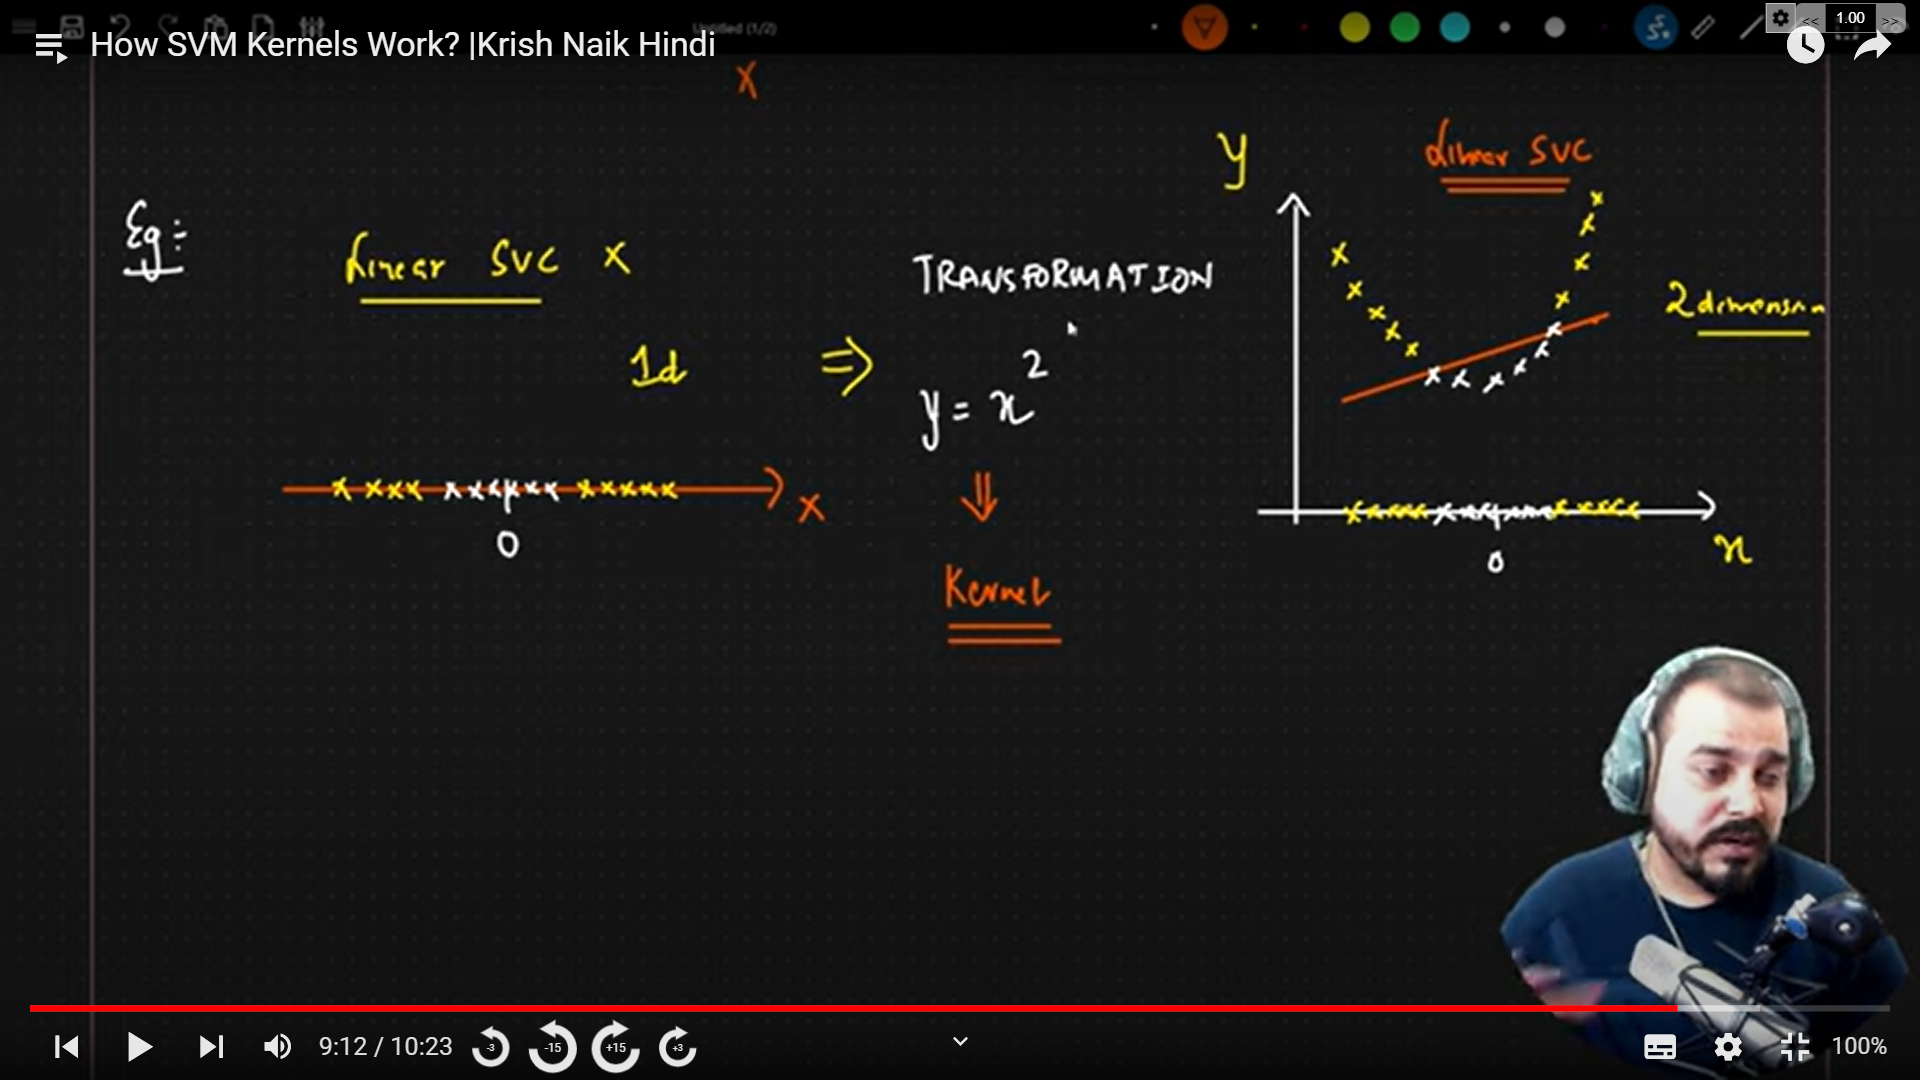 Untitled (1/2)
<< 1.00 >>
How SVM Kernels Work? |Krish Naik Hindi
X
Eg:-
Linear SVC X
1d
⇒
X
0
TRANSFORMATION
y = x²
⇓
Kernel
y
Linear SVC
2 dimension
x
0
9:12 / 10:23
-3
-15
+15
+3
100%